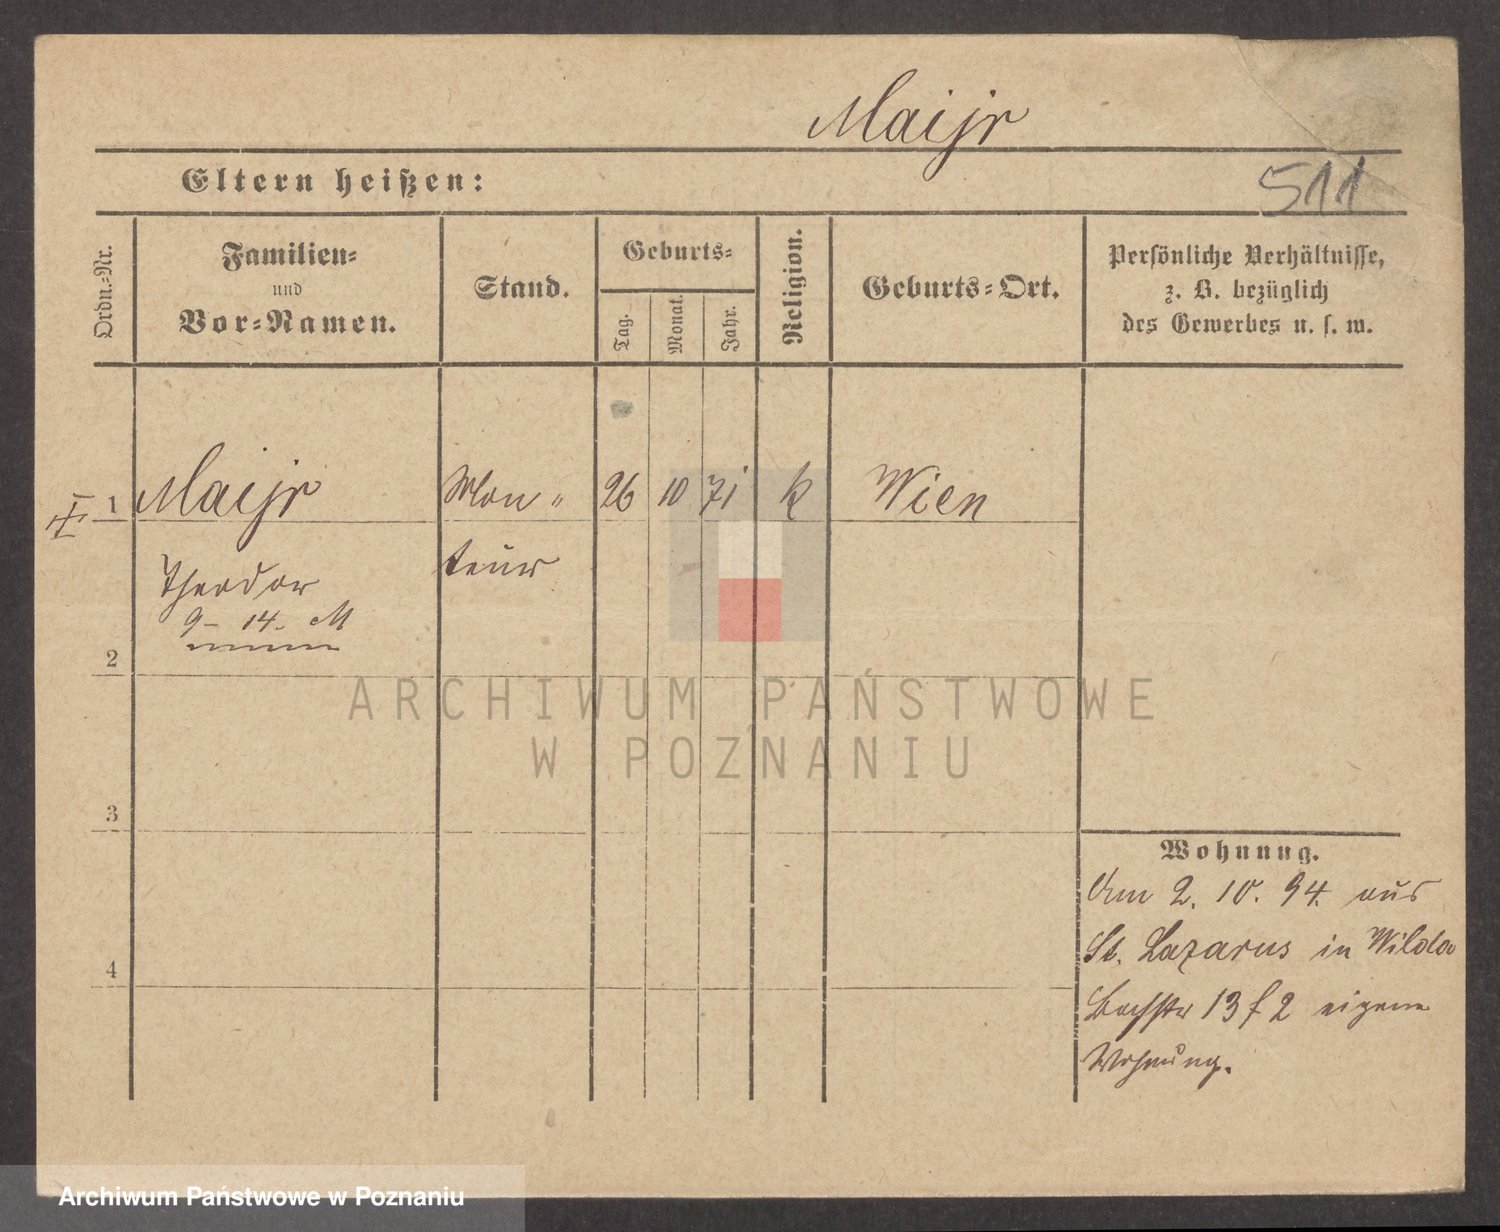 Maijr
Eltern heißen:
511
Ordn.-Nr.
Familien-
und
Vor-Namen.
Stand.
Geburts-
Tag.
Monat.
Jahr.
Religion.
Geburts-Ort.
Persönliche Verhältnisse,
z. B. bezüglich
des Gewerbes u. s. w.
1 Maijr Mon " 26 10 71 k Wien
Theodor teur
9- 14. M
2
3
4
ARCHIWUM PAŃSTWOWE
W POZNANIU
Wohnung.
Am 2. 10. 94. aus
St. Lazarus in Wilda
Bachstr 13 f 2 eigene
Wohnung.
Archiwum Państwowe w Poznaniu